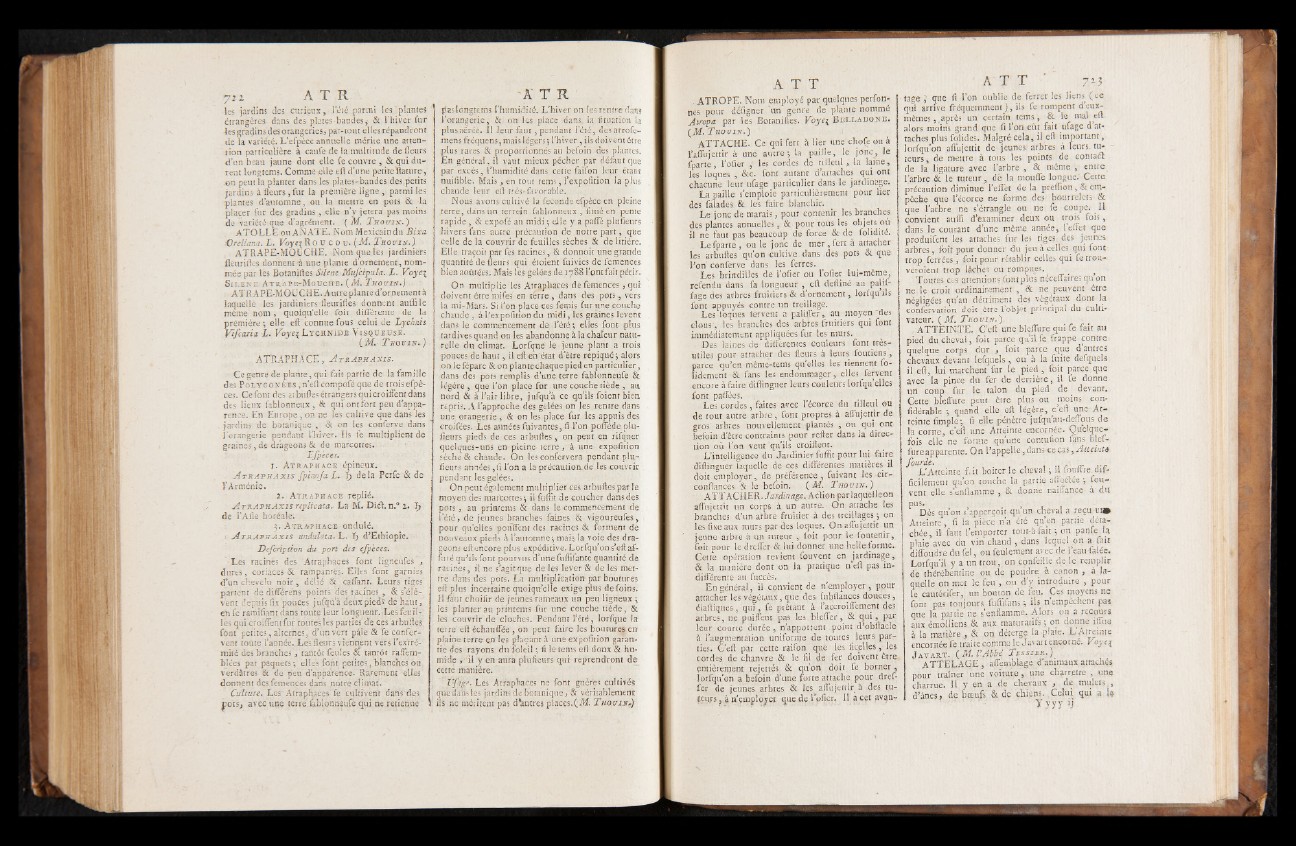 722 A T R
les jardins des curieux, l'été parmi les plantes
étrangères dans des plates bandes, & l'hiver sur
les gradins des orangeries, par-tout elles répandront
de la variété. L'espèce annuelle mérite une atten-
tion particulière à cause de la multitude de fleurs
d'un beau jaune dont elle se couvre, & qui du-
rent longtems. Comme elle est d'une petite stature,
on peut la planter dans les plates-bandes des petits
jardins à fleurs, sur la première ligne, parmi les
plantes d'automne, ou la mettre en pots & la
placer sur des gradins, elle n'y jetera pas moins
de variété que d'agrément. (M. THOUIN.)
ATOLLE ou ANATE. Nom Mexicain du Bixa
Orellana. L. Voyez ROUCOU. (M. THOUIN.)
ATRAPE-MOUCHE. Nom que les jardiniers
fleuristes donnent à une plante d'ornement, nom-
mée par les Botanistes Silene Muscipula. L. Voyez
SILENE ATRAPE-MOUCHE. (M. THOUIN.)
ATRAPE-MOUCHE. Autre plante d'ornement à
laquelle les jardiniers fleuristes donnent aussi le
même nom, quoiqu'elle soit différente de la
première; elle est connue sous celui de Lychnis
Viscaria L. Voyez LYCHNIDE VISQUEUSE.
(M. THOUIN.)
ATRAPHACE, ATRAPHAXIS.
Ce genre de plante, qui fait partie de la famille
des POLYGONÉES, n'est composé que de trois espè-
ces. Ce sont des arbustes étrangers qui croissent dans
des lieux sablonneux, & qui ont fort peu d'appa-
rence. En Europe, on ne les cultive que dans les
jardins de botanique, & on les conserve dans
l'orangerie pendant l'hiver. Ils se multiplient de
graines, de drageons & de marcottes.
Espèces.
1. ATRAPHACE épineux.
ATRAPHAXIS spinosa L. ♄ de la Perse & de
l'Arménie.
2. ATRAPHACE replié.
ATRAPHAXIS replicata. La M. Dict. n.° 2. ♄
de l'Asie boréale.
3. ATRAPHACE ondulé.
ATRAPHAXIS undulata. L. ♄ d'Ethiopie.
Description du port des espèces.
Les racines des Atraphaces sont ligneuses,
dures, coriaces & rampantes. Elles sont garnies
d'un chevelu noir, délié & cassant. Leurs tiges
partent de différens points des racines, & s'élè-
vent depuis six pouces jusqu'à deux pieds de haut,
en se ramifiant dans toute leur longueur. Les feuil-
les qui croissent sur toutes les parties de ces arbustes
sont petites, alternes, d'un vert pâle & se conser-
vent toute l'année. Les fleurs viennent vers l'extré-
mité des branches, tantôt seules & tantôt rassem-
blées par paquets; elles sont petites, blanches ou
verdâtres & de peu d'apparence. Rarement elles
donnent des semences dans notre climat.
Culture. Les Atraphaces se cultivent dans des
pots, avec une terre sablonneuse qui ne retienne
A T R
pas longtems l'humidité. L'hiver on les rentre dans
l'orangerie, & on les place dans la situation la
plus aérée. Il leur faut, pendant l'été, des arrose-
mens fréquens, mais légers; l'hiver, ils doivent être
plus rares & proportionnés au besoin des plantes.
En général, il vaut mieux pécher par défaut que
par excès, l'humidité dans cette saison leur étant
nuisible. Mais, en tout tems, l'exposition la plus
chaude leur est très-favorable.
Nous avons cultivé la seconde espèce en pleine
terre, dans un terrein sablonneux, situé en pente
rapide, & exposé au midi; elle y a passé plusieurs
hivers sans autre précaution de notre part, que
celle de la couvrir de feuilles sèches & de litière.
Elle traçoit par ses racines, & donnoit une grande
quantité de fleurs qui étoient suivies de semences
bien aoûtées. Mais les gelées de 1788 l'ont fait périr.
On multiplie les Atraphaces de semences, qui
doivent être mises en terre, dans des pots, vers
la mi-Mars. Si l'on place ces semis sur une couche
chaude, à l'exposition du midi, les graines lèvent
dans le commencement de l'été; elles sont plus
tardives quand on les abandonne à la chaleur natu-
relle du climat. Lorsque le jeune plant a trois
pouces de haut, il est en état d'être repiqué; alors
on le sépare & on plante chaque pied en particulier,
dans des pots remplis d'une terre sablonneuse &
légère, que l'on place sur une couche tiède, au
nord & à l'air libre, jusqu'à ce qu'ils soient bien
repris. A l'approche des gelées on les rentre dans
une orangerie, & on les place sur les appuis des
croisées. Les années suivantes, si l'on possède plu-
sieurs pieds de ces arbustes, on peut en risquer
quelques-uns en pleine terre, à une exposition
sèche & chaude. On les conservera pendant plu-
sieurs années, si l'on a la précaution de les couvrir
pendant les gelées.
On peut également multiplier ces arbustes par le
moyen des marcottes; il suffit de coucher dans des
pots, au printems & dans le commencement de
l'été, de jeunes branches saines & vigoureuses,
pour qu'elles poussent des racines & forment de
nouveaux pieds à l'automne; mais la voie des dra-
geons est encore plus expéditive. Lorsqu'on s'est as-
suré qu'ils sont pourvus d'une suffisante quantité de
racines, il ne s'agit que de les lever & de les met-
tre dans des pots. La multiplication par boutures
est plus incertaine quoiqu'elle exige plus de soins.
Il faut choisir de jeunes rameaux un peu ligneux;
les planter au printems sur une couche tiède, &
les couvrir de cloches. Pendant l'été, lorsque la
terre est échauffée, on peut faire les boutures en
plaine terre en les plaçant à une exposition garan-
tie des rayons du soleil; si le tems est doux & hu-
mide, il y en aura plusieurs qui reprendront de
cette manière.
Usage. Les Atraphaces ne sont guères cultivés
que dans les jardins de botanique, & véritablement
ils ne méritent pas d'autres places. (M. THOUIN.)
A T T
ATROPE. Nom employé par quelques person-
nes pour désigner un genre de plante nommé
Atropa par les Botanistes. Voyez BELLADONE.
(M. THOUIN.)
ATTACHE. Ce qui sert à lier une chose ou à
l'assujettir à une autre; la paille, le jonc, le
sparte, l'osier, les cordes de tilleul, la laine,
les loques, &c. sont autant d'attaches qui ont
chacune leur usage particulier dans le jardinage.
La paille s'emploie particulièrement pour lier
des salades & les faire blanchir.
Le jonc de marais, pour contenir les branches
des plantes annuelles, & pour tous les objets où
il ne faut pas beaucoup de force & de solidité.
Le sparte, ou le jonc de mer, sert à attacher
les arbustes qu'on cultive dans des pots & que
l'on conserve dans les serres.
Les brindilles de l'osier ou l'osier lui-même,
refendu dans sa longueur, est destiné au palis-
sage des arbres fruitiers & d'ornement, lorsqu'ils
sont appuyés contre un treillage.
Les loques servent à palisser, au moyen des
clous, les branches des arbres fruitiers qui sont
immédiatement appliquées sur les murs.
Des laines de différentes couleurs sont très-
utiles pour attacher des fleurs à leurs soutiens,
parce qu'en même-tems qu'elles les tiennent so-
lidement & sans les endommager, elles servent
encore à faire distinguer leurs couleurs lorsqu'elles
sont passées.
Les cordes, faites avec l'écorce du tilleul ou
de tout autre arbre, sont propres à assujettir de
gros arbres nouvellement plantés, ou qui ont
besoin d'être contraints pour rester dans la direc-
tion où l'on veut qu'ils croissent.
L'intelligence du Jardinier suffit pour lui faire
distinguer laquelle de ces différentes matières il
doit employer, de préférence, suivant les cir-
constances & le besoin. (M. THOUIN.)
ATTACHER. Jardinage. Action par laquelle on
assujettit un corps à un autre. On attache les
branches d'un arbre fruitier à des treillages; on
les fixe aux murs par des loques. On assujettit un
jeune arbre à un tuteur, soit pour le soutenir,
soit pour le dresser & lui donner une belle forme.
Cette opération revient souvent en jardinage,
& la manière dont on la pratique n'est pas in-
différente au succès.
En général, il convient de n'employer, pour
attacher les végétaux, que des substances douces,
élastiques, qui, se prêtant à l'accroissement des
arbres, ne puissent pas les blesser, & qui, par
leur courte durée, n'apportent point d'obstacle
à l'augmentation uniforme de toutes leurs par-
ties. C'est par cette raison que les ficelles, les
cordes de chanvre & le fil de fer doivent être
entièrement rejettés & qu'on doit se borner,
lorsqu'on a besoin d'une forte attache pour dres-
ser de jeunes arbres & les assujettir à des tu-
teurs, à n'employer que de l'osier. Il a cet avan-
A T T 723
tage, que si l'on oublie de serrer les liens (ce
qui arrive fréquemment), ils se rompent d'eux-
mêmes, après un certain tems, & le mal est
alors moins grand que si l'on eût fait usage d'at-
taches plus solides. Malgré cela, il est important,
lorsqu'on assujettit de jeunes arbres à leurs tu-
teurs, de mettre à tous les points de contact
de la ligature avec l'arbre, & même, entre
l'arbre & le tuteur, de la mousse longue. Cette
précaution diminue l'effet de la pression, & em-
pêche que l'écorce ne forme des bourrelets &
que l'arbre ne s'étrangle ou ne se coupe. Il
convient aussi d'examiner deux ou trois fois,
dans le courant d'une même année, l'effet que
produisent les attaches sur les tiges des jeunes
arbres, soit pour donner du jeu à celles qui sont
trop serrées, soit pour rétablir celles qui se trou-
veroient trop lâches ou rompues.
Toutes ces attentions sont plus nécessaires qu'on
ne le croit ordinairement, & ne peuvent être
négligées qu'au détriment des végétaux dont la
conservation doit être l'objet principal du culti-
vateur. (M. THOUIN.)
ATTEINTE. C'est une blessure qui se fait au
pied du cheval, soit parce qu'il se frappe contre
quelque corps dur, soit parce que d'autres
chevaux devant lesquels, ou à la suite desquels
il est, lui marchent sur le pied, soit parce que
avec la pince du fer de derrière, il se donne
un coup sur le talon du pied de devant.
Cette blessure peut être plus ou moins con-
sidérable; quand elle est légère, c'est une At-
teinte simple; si elle pénètre jusqu'au-dessous de
la corne, c'est une Atteinte encornée. Quelque-
fois elle ne forme qu'une contusion sans bles-
sure apparente. On l'appelle, dans ce cas, Atteinte
sourde.
L'Atteinte fait boiter le cheval; il souffre dif-
ficilement qu'on touche la partie affectée; sou-
vent elle s'enflamme, & donne naissance à du
pus.
Dès qu'on s'apperçoit qu'un cheval a reçu une
Atteinte, si la pièce n'a été qu'en partie déta-
chée, il faut l'emporter tout-à-fait; on panse la
plaie avec du vin chaud, dans lequel on a fait
dissoudre du sel, ou seulement avec de l'eau salée.
Lorsqu'il y a un trou, on conseille de le remplir
de thérébentine ou de poudre à canon, à la-
quelle on met le feu, ou d'y introduire, pour
le cautériser, un bouton de feu. Ces moyens ne
sont pas toujours suffisans; ils n'empêchent pas
que la partie ne s'enflamme. Alors on a recours
aux émolliens & aux maturatifs; on donne issue
à la matière, & on déterge la plaie. L'Atteinte
encornée se traite comme le Javart encorné. Voyez
JAVART. (M. l'Abbé TESSIER.)
ATTELAGE, assemblage d'animaux attachés
pour traîner une voiture, une charrette, une
charrue. Il y en a de chevaux, de mulets,
d'ânes, de bœufs & de chiens. Celui qui a la
Y y y y ij